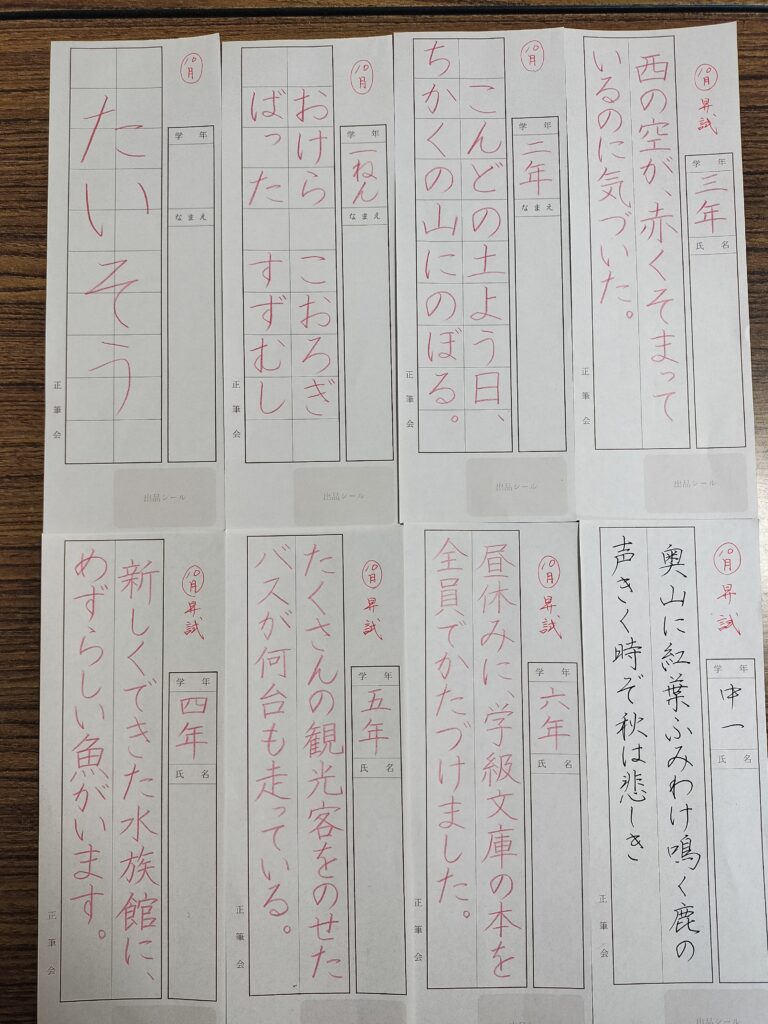 10月
学年
なまえ
たいそう
正筆会
出品シール
10月
学年
一ねん
なまえ
おけら こおろぎ
ばった すずむし
正筆会
出品シール
10月
学年
二年
なまえ
こんどの土よう日、
ちかくの山にのぼる。
正筆会
出品シール
10月 昇試
学年
三年
氏名
西の空が、赤くそまって
いるのに気づいた。
正筆会
出品シール
10月 昇試
学年
四年
氏名
新しくできた水族館に、
めずらしい魚がいます。
正筆会
10月 昇試
学年
五年
氏名
たくさんの観光客をのせた
バスが何台も走っている。
正筆会
10月 昇試
学年
六年
氏名
昼休みに、学級文庫の本を
全員でかたづけました。
正筆会
10月 昇試
学年
中一
氏名
奥山に紅葉ふみわけ鳴く鹿の
声きく時ぞ秋は悲しき
正筆会
出品シール